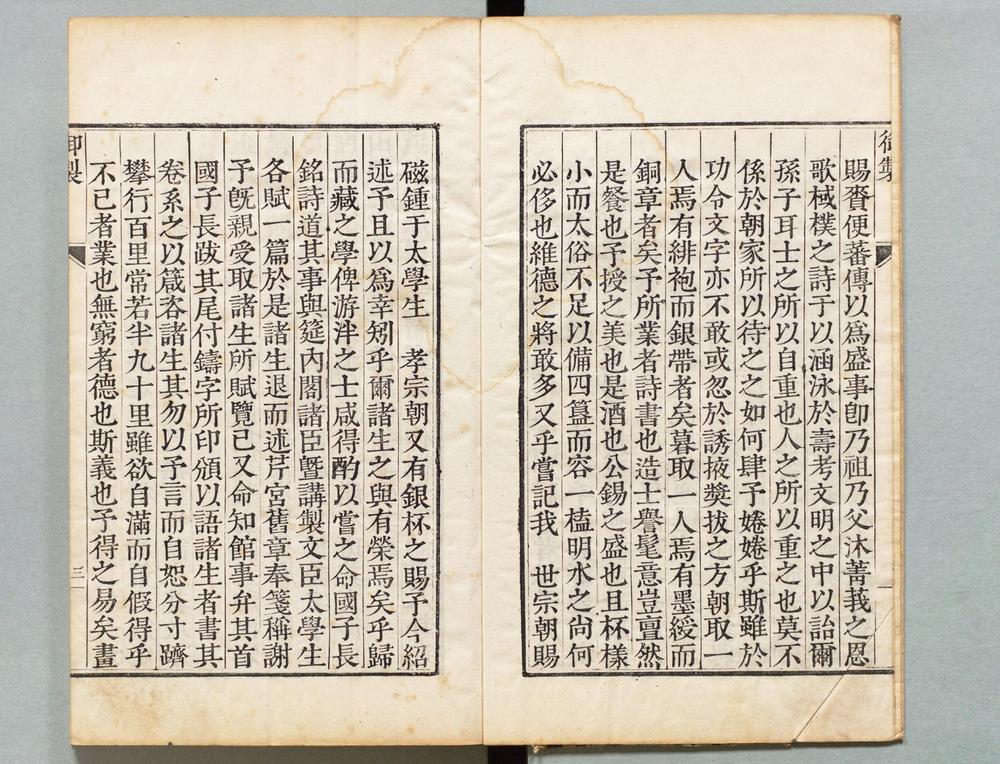 御製
賜賚便蕃傳以爲盛事卽乃祖乃父沐菁莪之恩
歌棫樸之詩于以涵泳於壽考文明之中以詒爾
孫子耳士之所以自重也人之所以重之也莫不
係於朝家所以待之之如何肆予惓惓乎斯雖於
功令文字亦不敢或忽於誘掖奬拔之方朝取一
人焉有緋袍而銀帶者矣暮取一人焉有墨綬而
銅章者矣予所業者詩書也造士譽髦意豈亶然
是餐也予授之美也是酒也公錫之盛也且杯樣
小而太俗不足以備四簋而容一榼明水之尙何
必侈也維德之將敢多又乎嘗記我　世宗朝賜
磁鍾于太學生　孝宗朝又有銀杯之賜予今紹
述予且以爲幸矧乎爾諸生之與有榮焉矣乎歸
而藏之學俾游泮之士咸得酌以嘗之命國子長
銘詩道其事與筵內閣諸臣曁講製文臣太學生
各賦一篇於是諸生退而述芹宮舊章奉箋稱謝
予旣親受取諸生所賦覽已又命知館事弁其首
國子長跋其尾付鑄字所印頒以語諸生者書其
卷系之以箴咨諸生其勿以予言而自恕分寸躋
攀行百里常若半九十里雖欲自滿而自假得乎
不已者業也無窮者德也斯義也予得之易矣畫
御製
三